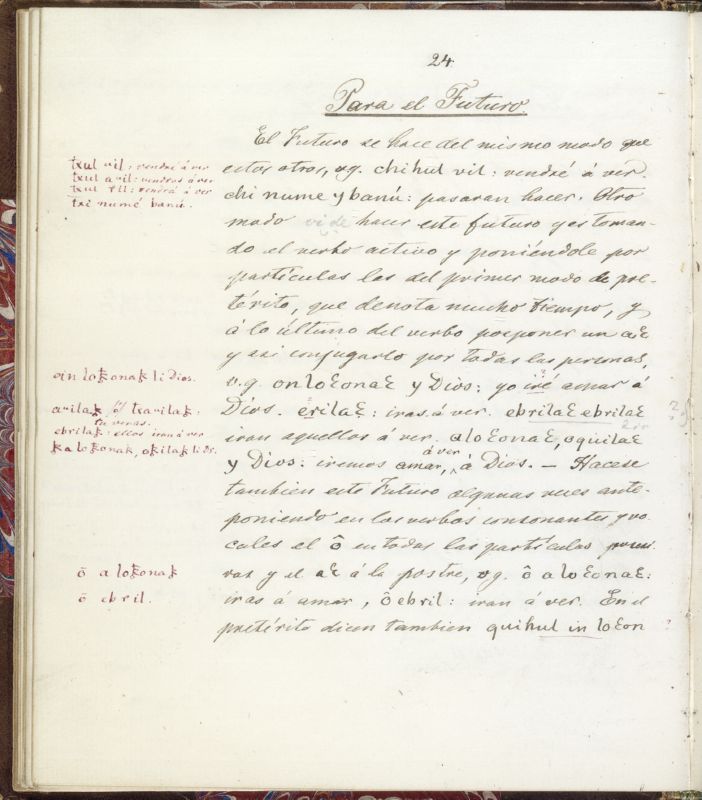 24.
Para el Futuro.
El Futuro se hace del mismo modo que
estos otros, vg. chi hul vil: vendré á ver.
chi nume y banú: pasaran hacer. Otro
modo de hacer este futuro y es toman-
do el verbo activo y poniéndole por
partículas las del primer modo de pre-
térito, que denota mucho tiempo, y
á lo último del verbo posponer un aꜫ
y asi conjugarlo por todas las personas,
v.g. on loꜫonaꜫ y Dios: yo iré amar á
Dios. erilaꜫ: iras á ver. ebrilaꜫ ebrilaꜫ
iran aquellos á ver. aloꜫonaꜫ, oquilaꜫ
y Dios: iremos amar, á ver á Dios. — Hacese
tambien este Futuro algunas veces ante-
poniendo en los verbos consonantes y vo-
cales el ô en todas las partículas
y el aꜫ á la postre, vg. ô a loꜫonaꜫ:
iras á amar, ô ebril: iran á ver. En el
pretérito dicen tambien quihul in loꜫon
txul vil: vendré á ver
txul avil: vendras á ver
txulril: vendrá á ver
txi numé banú.
oin loꝁonaꝁ li Dios.
avilaꝁ, txavilaꝁ:
tu veras.
ebrilaꝁ: ellos iran á ver
ꝁa loꝁonaꝁ, oꝁilaꝁ li Ds.
ô a loꝁonaꝁ
ô ebril.